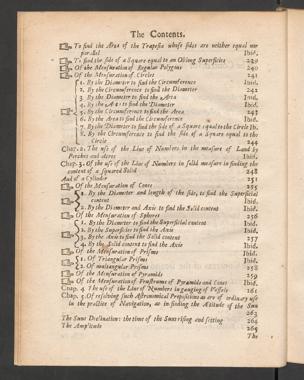 The Contents.
To find the Area of the Trapesia whose sides are neither equal nor
parallel Ibid.
To find the side of a Square equal to an Oblong Superficies 239
Of the Mensuration of Regular Polygons 240
Of the Mensuration of Circles 241
1. By the Diameter to find the Circumference Ibid.
2. By the Circumference to find the Diameter 242
3. By the Diameter to find the Area Ibid.
4. By the Area to find the Diameter Ibid.
5. By the Circumference to find the Area 243
6. By the Area to find the Circumference Ibid.
7. By the Diameter to find the side of a Square equal to the Circle Ib.
8. By the Circumference to find the side of a Square equal to the
Circle 244
Chap. 2. The use of the Line of Numbers in the measure of Land by
Perches and Acres Ibid.
Chap. 3. Of the use of the Line of Numbers in solid measure in finding the
content of a squared Solid 248
And of a Cylinder 251
Of the Mensuration of Cones 255
1. By the Diameter and length of the side, to find the Superficial
content Ibid.
2. By the Diameter and Axis to find the Solid content Ibid.
Of the Mensuration of Spheres 256
1. By the Diameter to find the Superficial content Ibid.
2. By the Superficies to find the Axis Ibid.
3. By the Axis to find the Solid content 257
4. By the Solid content to find the Axis Ibid.
Of the Mensuration of Prisms Ibid.
1. Of Triangular Prisms Ibid.
2. Of multangular Prisms 258
Of the Mensuration of Pyramids 259
Of the Mensuration of Frustrums of Pyramids and Cones Ibid.
Chap. 4. The use of the Line of Numbers in gauging of Vessels 261
Chap. 5. Of resolving such Astronomical Propositions as are of ordinary use
in the practice of Navigation, as in finding the Altitude of the Sun
263
The Suns Declination: the time of the Suns rising and setting 264
The Amplitude 265
The